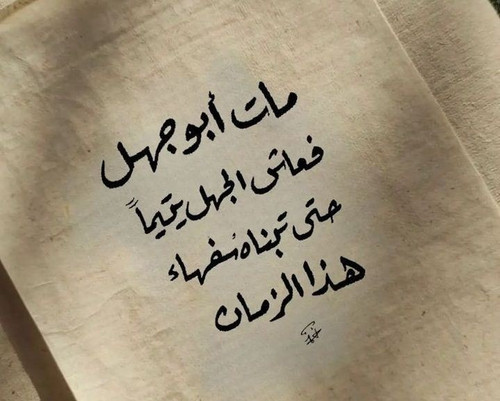 مات أبو جهل
فعاش الجهل يتيماً
حتى تبناه سفهاء
هذا الزمان